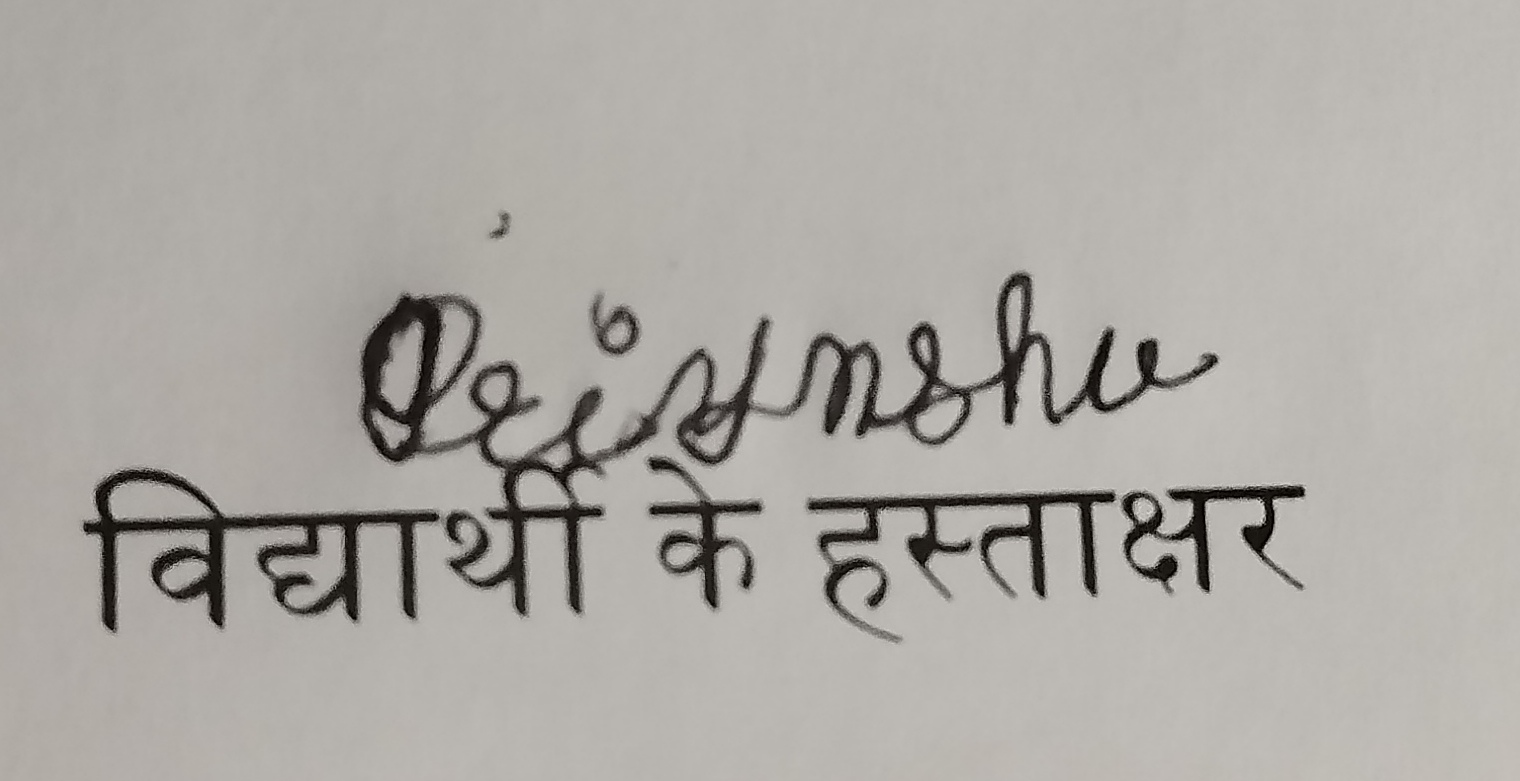 Priyanshu
विद्यार्थी के हस्ताक्षर